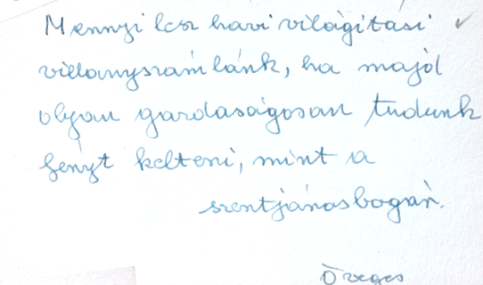 Mennyi lesz havi világítási
villanyszámlánk, ha majd
olyan gazdaságosan tudunk
fényt kelteni, mint a
szentjánosbogár.
Öveges